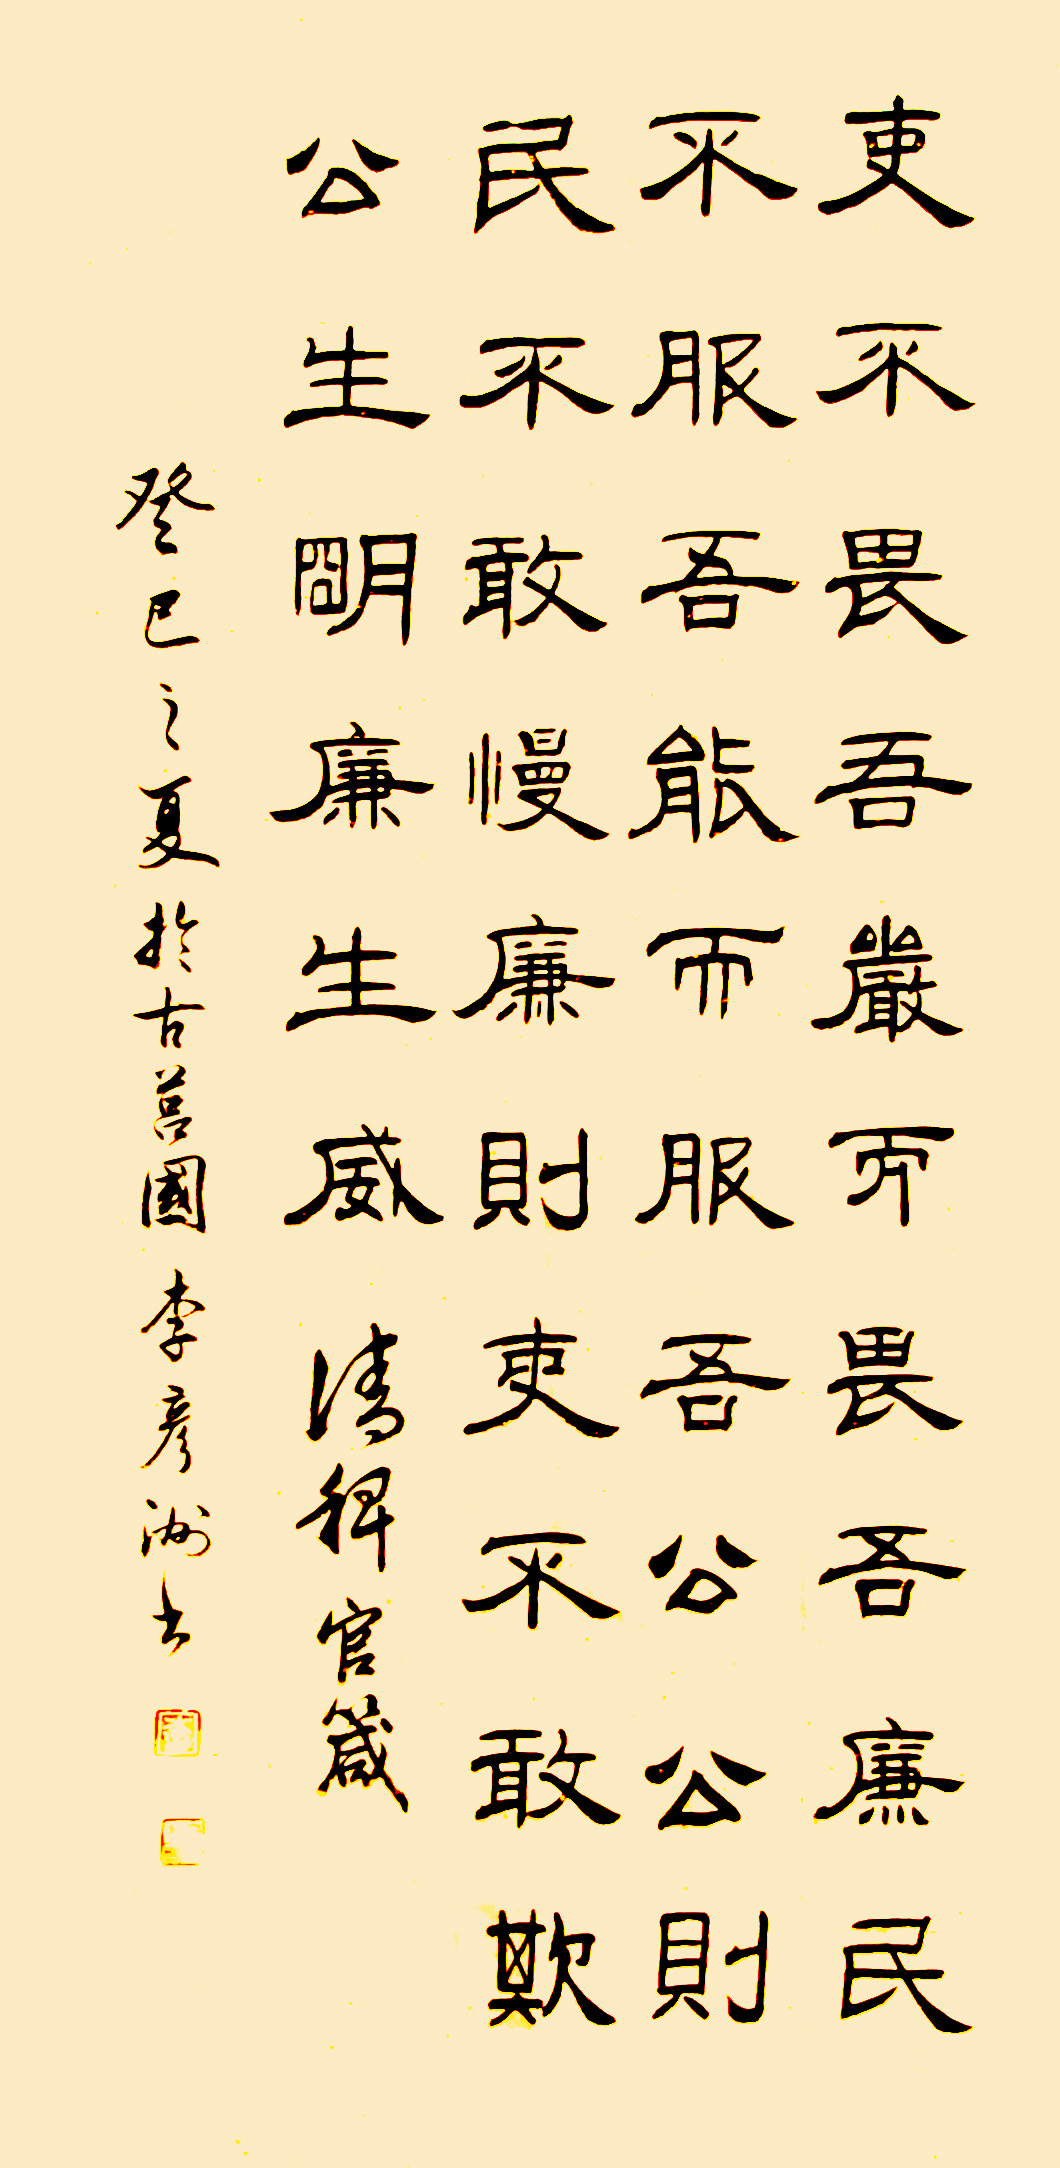 吏不畏吾嚴而畏吾廉民
不服吾能而服吾公公則
民不敢慢廉則吏不敢欺
公生明廉生威 清稗官箴
癸巳之夏於古莒國李彥洲書